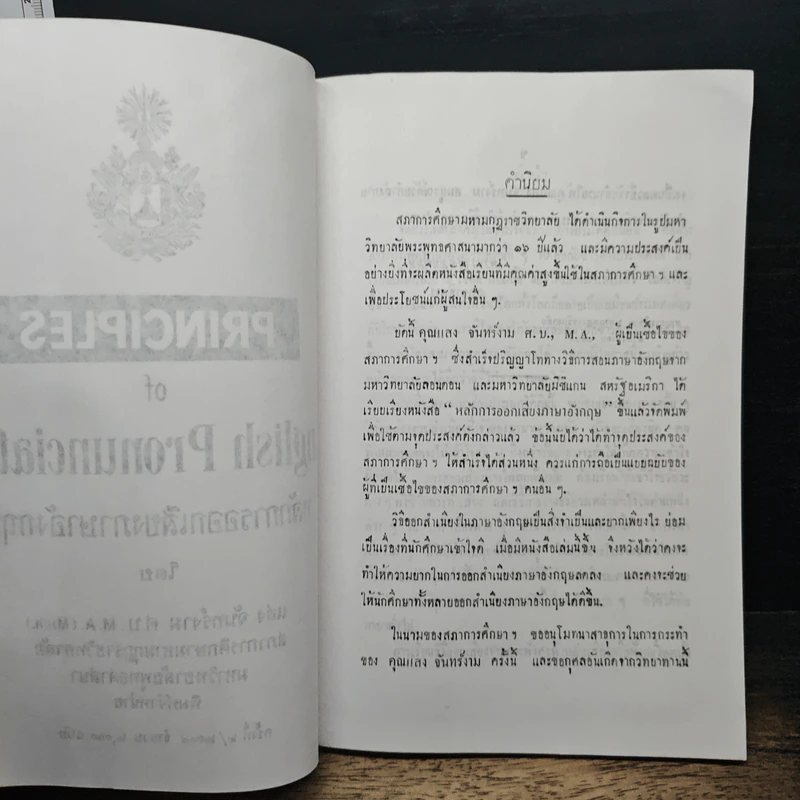 PRINCIPLES
of
English Pronunciat
หลักการออกเสียงภาษาอังกฤ
โดย
แสง จันทร์งาม ศ.บ. M.A.
สภาการศึกษามหามกุฏราชวิทยาลัย
มหาวิทยาลัยพุทธศาสนา
พิมพ์จำหน่าย
คำนิยม
สภาการศึกษามหามกุฏราชวิทยาลัย ได้ดำเนินกิจการในรูปมหา
วิทยาลัยพระพุทธศาสนามากว่า ๑๖ ปีแล้ว และมีความประสงค์เป็น
อย่างยิ่งที่จะผลิตหนังสือเรียนที่มีคุณค่าสูงขึ้นใช้ในสภาการศึกษา ฯ และ
เพื่อประโยชน์แก่ผู้สนใจอื่น ๆ.
บัดนี้ คุณแสง จันทร์งาม ศ.บ., M.A., ผู้เป็นเชื้อไขของ
สภาการศึกษา ฯ ซึ่งสำเร็จปริญญาโททางวิธีการสอนภาษาอังกฤษจาก
มหาวิทยาลัยลอนดอน และมหาวิทยาลัยมิชิแกน สหรัฐอเมริกา ได้
เรียบเรียงหนังสือ "หลักการออกเสียงภาษาอังกฤษ" ขึ้นแล้วจัดพิมพ์
เพื่อใช้ตามจุดประสงค์ดังกล่าวแล้ว ข้อนี้นับได้ว่าได้ทำจุดประสงค์ของ
สภาการศึกษา ฯ ให้สำเร็จได้ส่วนหนึ่ง ควรแก่การถือเป็นแบบฉบับของ
ผู้ที่เป็นเชื้อไขของสภาการศึกษา ฯ คนอื่น ๆ.
วิธีออกสำเนียงในภาษาอังกฤษเป็นสิ่งจำเป็นและยากเพียงไร ย่อม
เป็นเรื่องที่นักศึกษาเข้าใจดี เมื่อมีหนังสือเล่มนี้ขึ้น จึงหวังได้ว่าคงจะ
ทำให้ความยากในการออกสำเนียงภาษาอังกฤษลดลง และคงจะช่วย
ให้นักศึกษาทั้งหลายออกสำเนียงภาษาอังกฤษได้ดีขึ้น.
ในนามของสภาการศึกษา ฯ ขออนุโมทนาสาธุการในการกระทำ
ของ คุณแสง จันทร์งาม ครั้งนี้ และขอกุศลอันเกิดจากวิทยาทานนี้